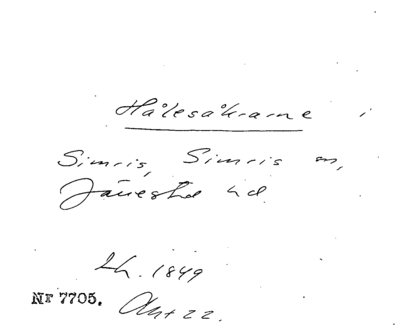 Hålesåkrarne i
Simris, Simris sn,
Järrestad hd
Lh. 1849
Nr 7705. Akt 22.